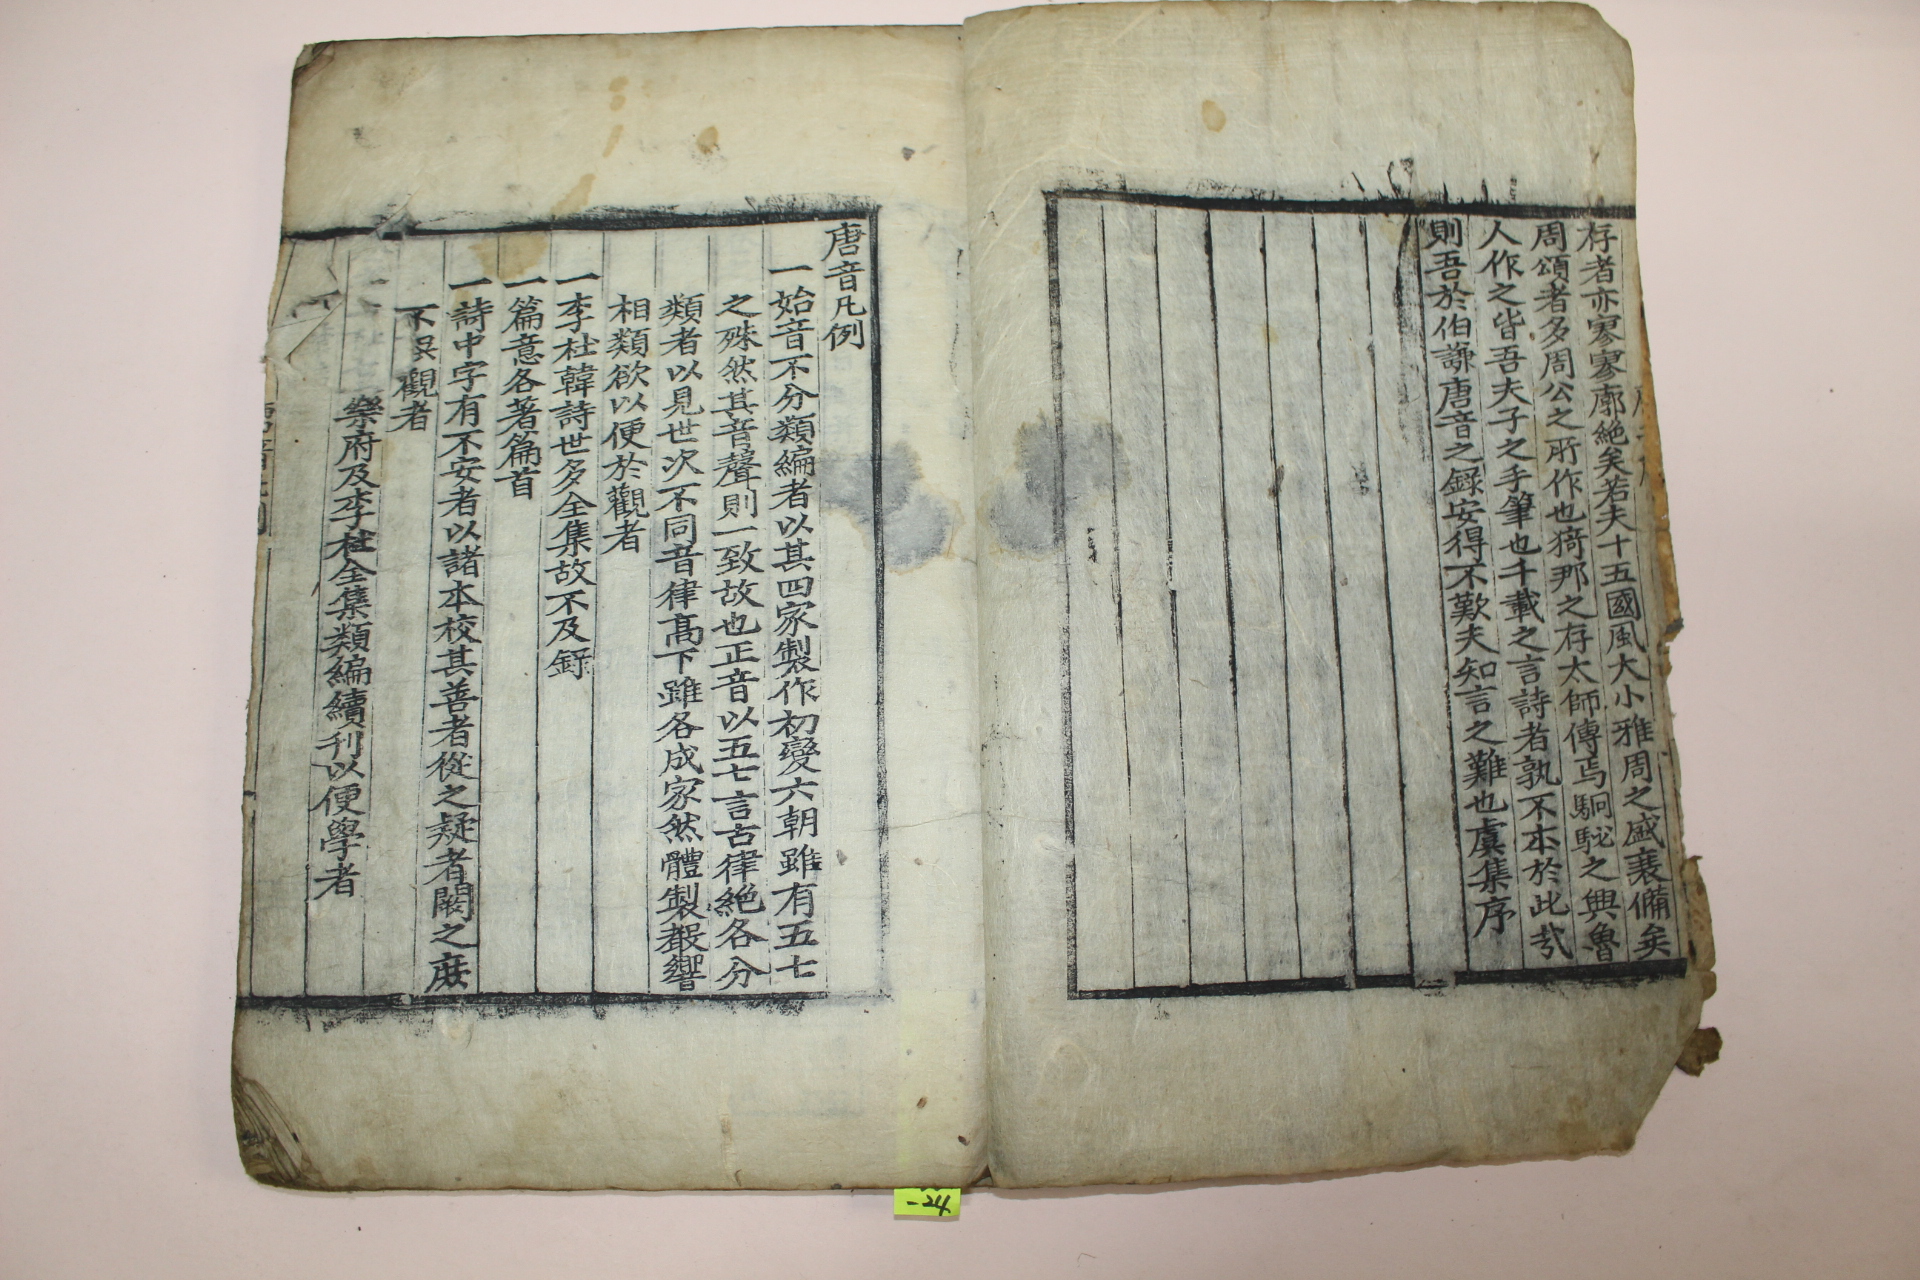 存者亦寥寥廓絶矣若夫十五國風大小雅周之盛衰備矣
周頌者多周公之所作也猗那之存太師傳焉駉駜之興魯
人作之皆吾夫子之手筆也千載之言詩者孰不本於此㢤
則吾於伯謙唐音之録安得不歎夫知言之難也虞集序
唐音凡例
一始音不分類編者以其四家製作初變六朝雖有五七
之殊然其音聲則一致故也正音以五七言古律絶各分
類者以見世次不同音律髙下雖各成家然體製聲響
相類欲以便於觀者
一李杜韓詩世多全集故不及録
一篇意各著篇首
一詩中字有不安者以諸本校其善者從之疑者闕之庶
不誤觀者
樂府及李杜全集類編續刊以便學者
-24